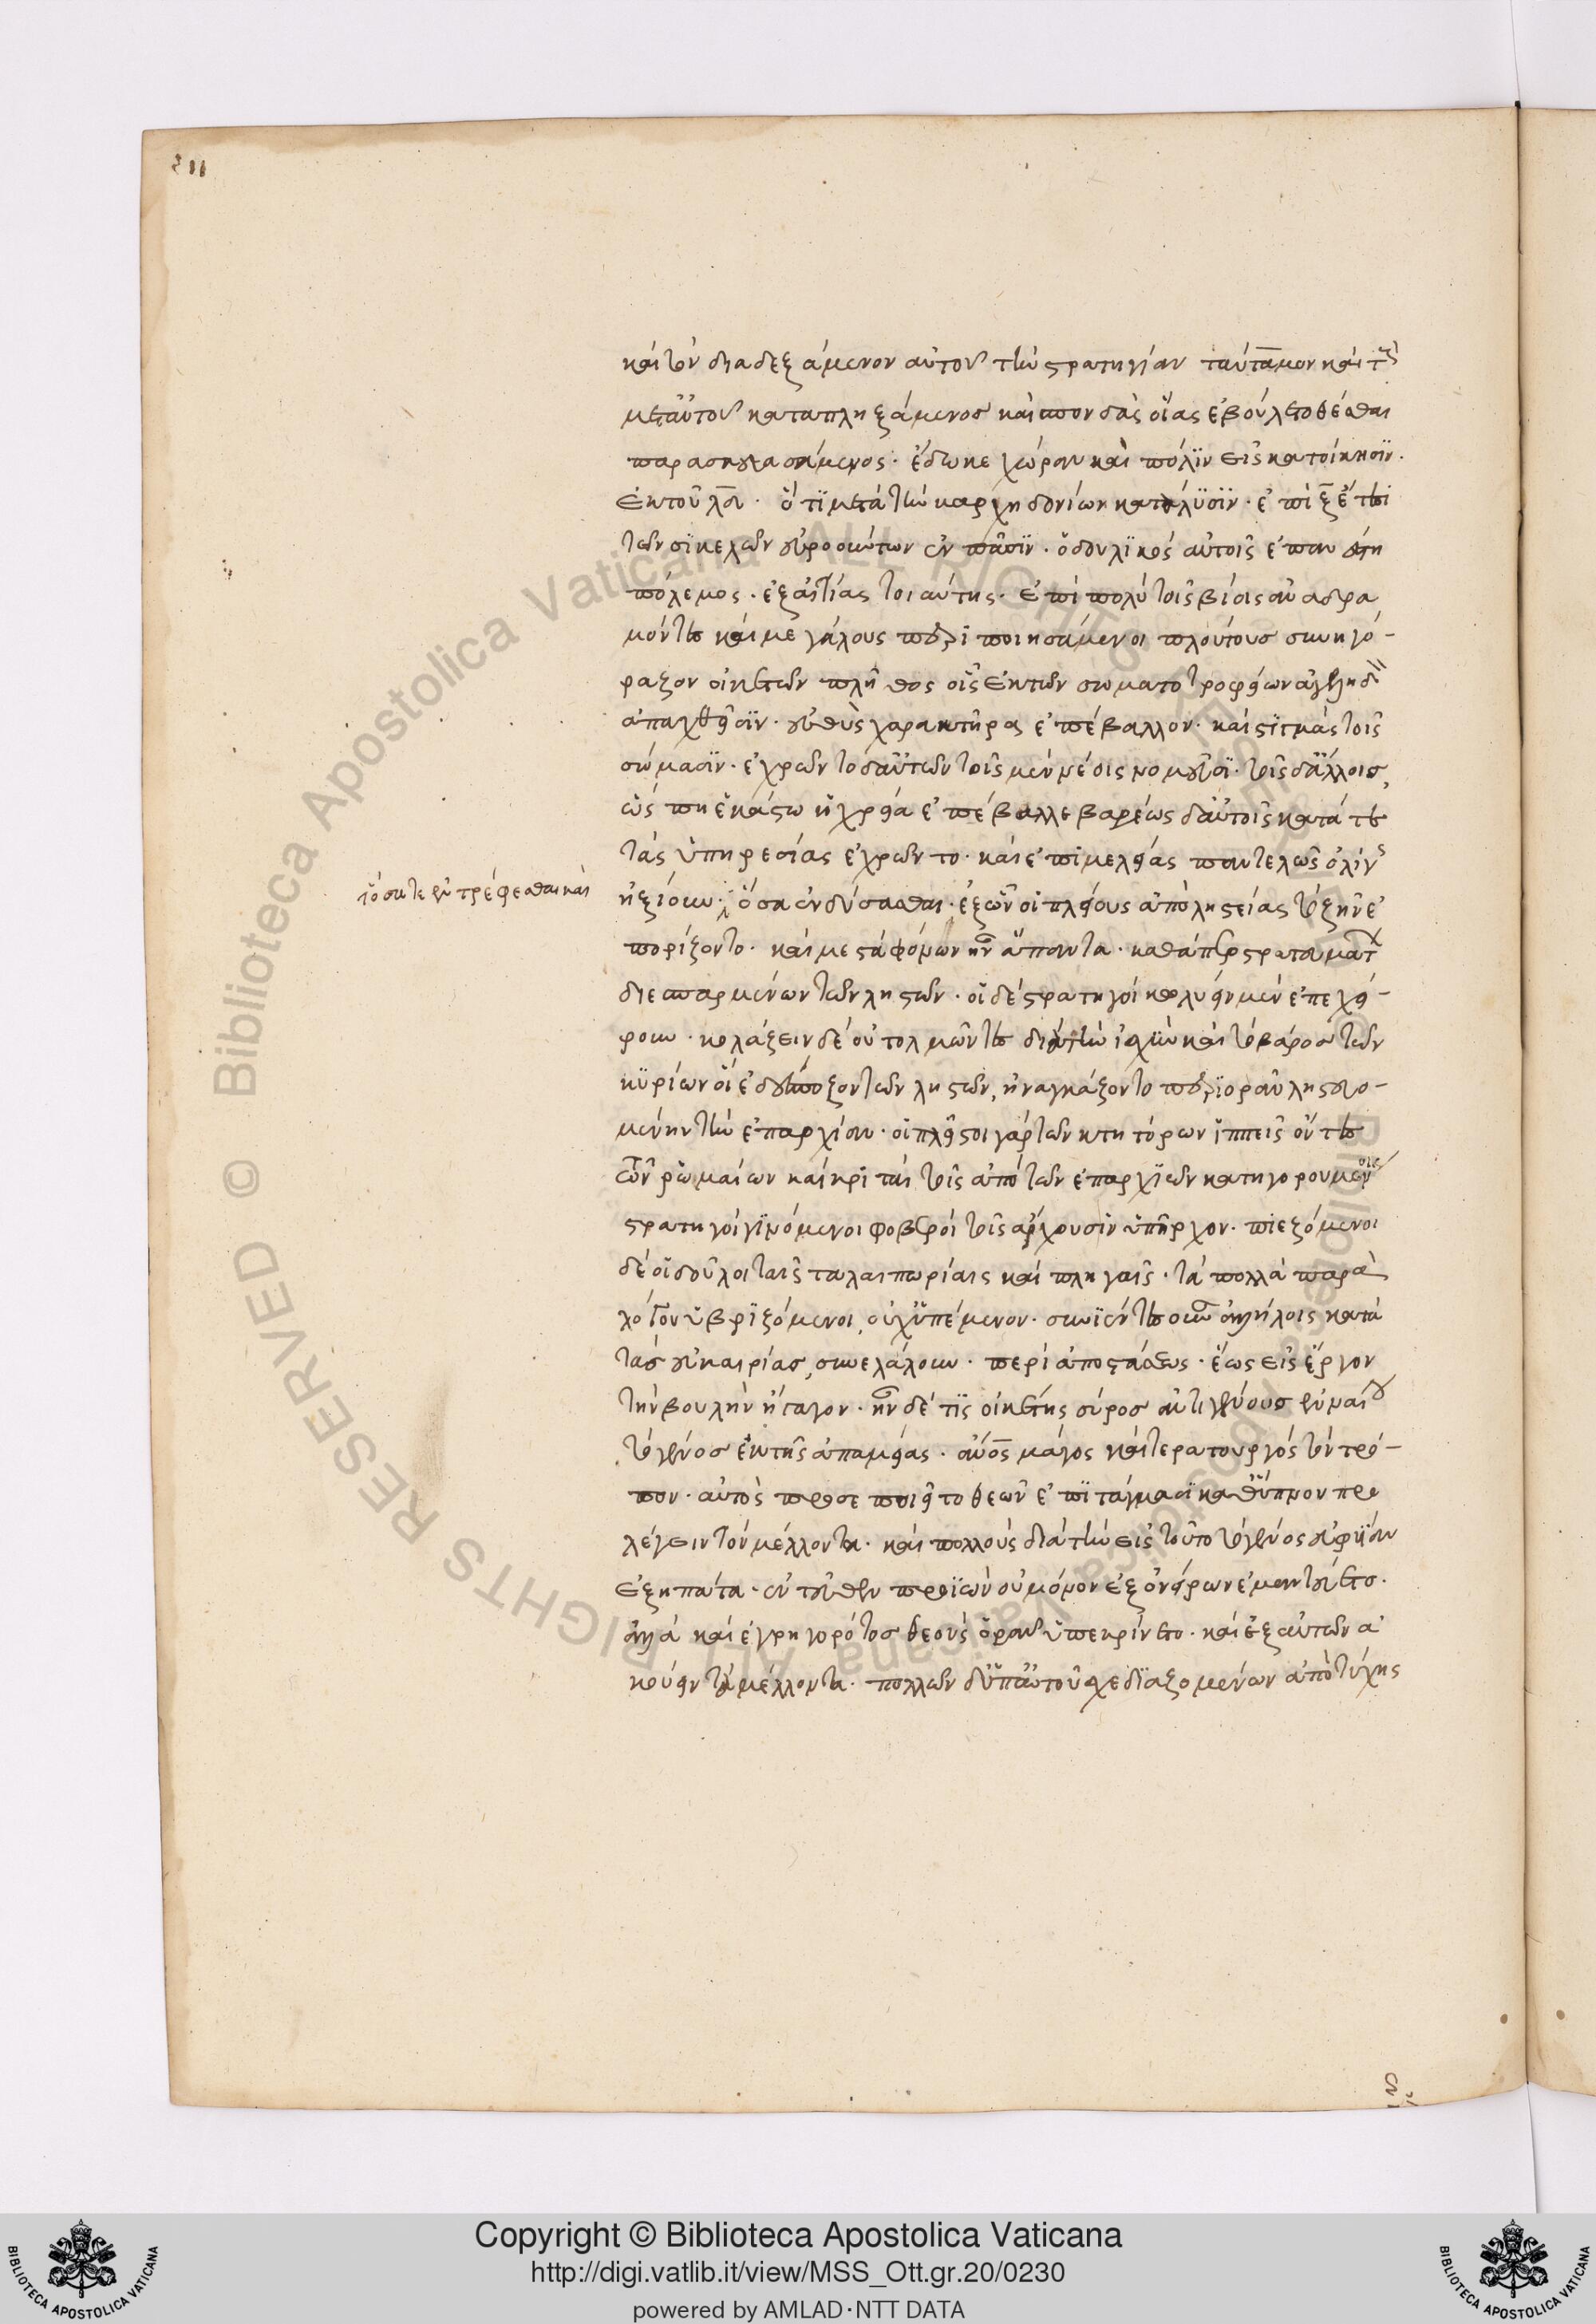 καὶ τὸν διαδεξάμενον αὐτοῦ τὴν στρατηγίαν ταύταμον καὶ τοὺς
μετ αὐτοῦ καταπληξάμενος καὶ σπονδὰς οἵας ἐβούλετο θέσθαι
παρασκευασάμενος· ἔδωκε χώραν καὶ πόλιν εἰς κατοίκησιν·
ἐκ τοῦ λδ· ὅτι μετὰ τὴν καρχηδονίων κατάλυσιν· ἐπὶ ξ ἔτεσι
τῶν σικελῶν εὐροούντων ἐν πᾶσιν· ὁ δουλικὸς αὐτοῖς ἐπανέστη
πόλεμος· ἐξ αἰτίας τοιαύτης· ἐπὶ πολὺ τοῖς βίοις ἀναδρα
μόντες καὶ μεγάλους περιποιησάμενοι πλούτους συνηγό-
ραζον οἰκετῶν πλῆθος οἷς ἐκ τῶν σωματοτροφείων ἀγεληδὸν
ἀπαχθεῖσιν· εὐθὺς χαρακτῆρας ἐπέβαλλον· καὶ στιγμὰς τοῖς
σώμασιν· ἐχρῶντο δ αὐτῶν τοῖς μὲν νέοις νομεῦσι· τοῖς δ ἄλλοις,
ὥς πῃ ἑκάστῳ ἡ χρεία ἐπέβαλλε βαρέως δ αὐτοῖς κατά τε
τὰς ὑπηρεσίας ἐχρῶντο· καὶ ἐπιμελείας παντελῶς ὀλίγης
ἠξίουν· ὅσα ἐνδύσασθαι· ἐξ ὧν οἱ πλείους ἀπὸ λῃστείας τὸ ζῆν ἐ
ὅσα τε ἐντρέφεσθαι καὶ
πορίζοντο· καὶ μεστὰ φόνων ἦν ἅπαντα· καθάπερ στρατευμάτων
διεσπαρμένων τῶν λῃστῶν· οἱ δὲ στρατηγοὶ κωλύειν μὲν ἐπεχεί-
ρουν· κολάζειν δὲ οὐ τολμῶντες διὰ τὴν ἰσχὺν καὶ τὸ βάρος τῶν
κυρίων οἳ ἐδέσποζον τῶν λῃστῶν, ἠναγκάζοντο περιορᾶν λῃστευο-
μένην τὴν ἐπαρχίαν· οἱ πλεῖστοι γὰρ τῶν κτητόρων ἱππεῖς ὄντες
τῶν ῥωμαίων καὶ κριταὶ τοῖς ἀπὸ τῶν ἐπαρχιῶν κατηγορουμένοις
στρατηγοὶ γινόμενοι φοβεροὶ τοῖς ἄρχουσιν ὑπῆρχον· πιεζόμενοι
δὲ οἱ δοῦλοι ταῖς ταλαιπωρίαις καὶ πληγαῖς· τὰ πολλὰ παρὰ
λόγον ὑβριζόμενοι, οὐχ ὑπέμενον· συνιόντες οὖν ἀλλήλοις κατὰ
τὰς εὐκαιρίας, συνελάλουν· περὶ ἀποστάσεως· ἕως εἰς ἔργον
τὴν βουλὴν ἤγαγον· ἦν δέ τις οἰκέτης σύρος ἀντιγένους ἐνναίου
τὸ γένος ἐκ τῆς ἀπαμείας· ἄνος μάγος καὶ τερατουργὸς τὸν τρό-
πον· αὐτὸς προσεποιεῖτο θεῶν ἐπιτάγμασι καθ ὕπνον προ
λέγειν τὸν μέλλοντα· καὶ πολλοὺς διὰ τὴν εἰς τοῦτο τὸ γένος εὐφυΐαν
ἐξηπάτα· ἐντεῦθεν προϊὼν οὐ μόνον ἐξ ὀνείρων ἐμαντεύετο·
ἀλλὰ καὶ ἐγρηγορότος θεοὺς ὁρᾶν ὑπεκρίνετο· καὶ ἐξ αὐτῶν ἀ
κούειν τὰ μέλλοντα· πολλῶν δ ὑπ αὐτοῦ σχεδιαζομένων ἀπὸ τύχης
Copyright © Biblioteca Apostolica Vaticana
http://digi.vatlib.it/view/MSS_Ott.gr.20/0230
powered by AMLAD·NTT DATA